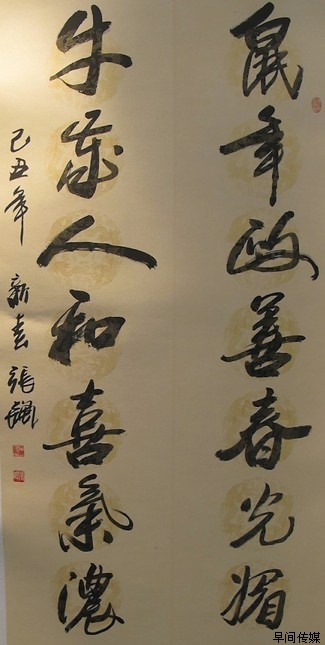 鼠年政善春光媚
牛歲人和喜氣濃
己丑年 新春 張
早间传媒